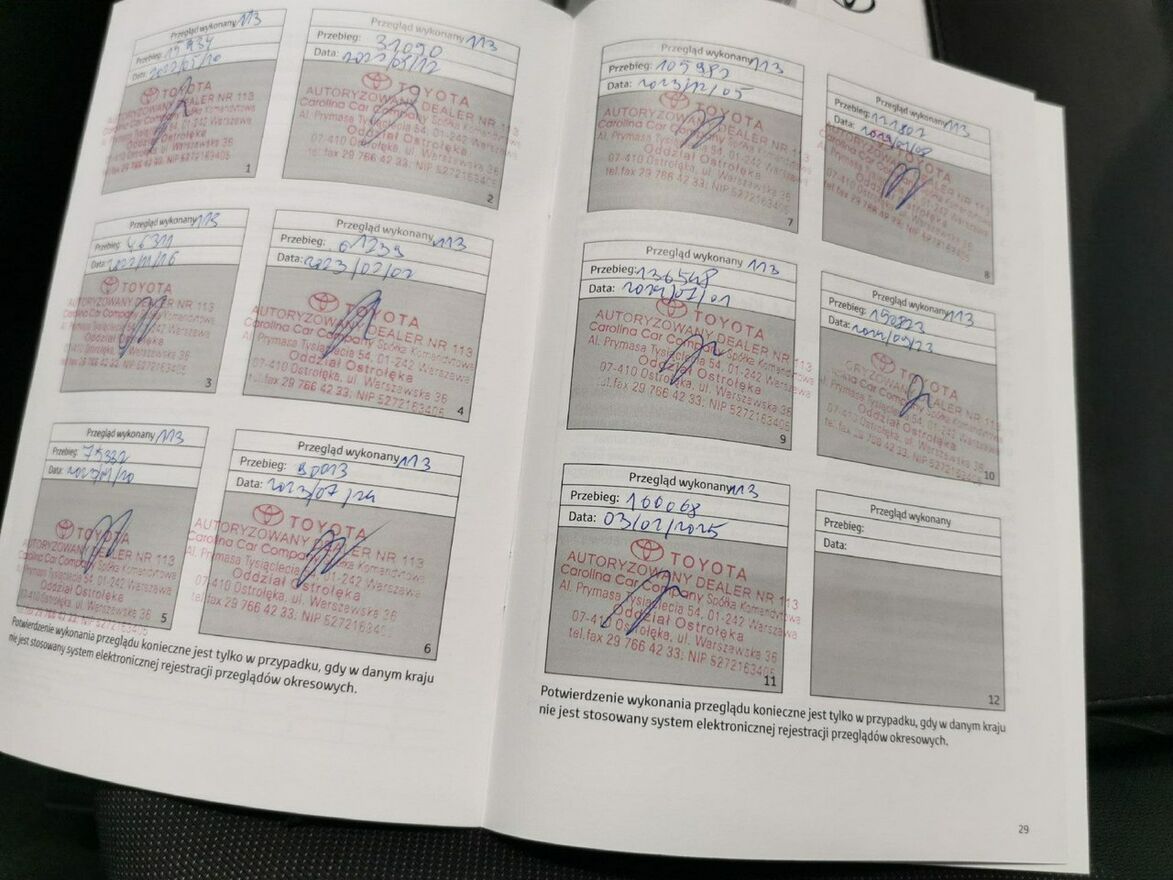 Przegląd wykonany 113
Przebieg: 15934
Data: 2022/05/10
TOYOTA
AUTORYZOWANY DEALER NR 113
Carolina Car Company Spółka Komandytowa
Al. Prymasa Tysiąclecia 54, 01-242 Warszawa
Oddział Ostrołęka
07-410 Ostrołęka, ul. Warszawska 36
tel.fax 29 766 42 33; NIP 5272163405
1
Przegląd wykonany 113
Przebieg: 31090
Data:
TOYOTA
AUTORYZOWANY DEALER NR 113
Carolina Car Company Spółka Komandytowa
Al. Prymasa Tysiąclecia 54, 01-242 Warszawa
Oddział Ostrołęka
07-410 Ostrołęka, ul. Warszawska 36
tel.fax 29 766 42 33; NIP 5272163405
2
Przegląd wykonany 113
Przebieg: 46311
Data: 2022/11/16
TOYOTA
AUTORYZOWANY DEALER NR 113
Carolina Car Company Spółka Komandytowa
Al. Prymasa Tysiąclecia 54, 01-242 Warszawa
Oddział Ostrołęka
07-410 Ostrołęka, ul. Warszawska 36
tel.fax 29 766 42 33; NIP 5272163405
3
Przegląd wykonany 113
Przebieg: 61239
Data: 2023/02/02
TOYOTA
AUTORYZOWANY DEALER NR 113
Carolina Car Company Spółka Komandytowa
Al. Prymasa Tysiąclecia 54, 01-242 Warszawa
Oddział Ostrołęka
07-410 Ostrołęka, ul. Warszawska 36
tel.fax 29 766 42 33; NIP 5272163405
4
Przegląd wykonany 113
Przebieg: 75332
Data:
TOYOTA
AUTORYZOWANY DEALER NR 113
Carolina Car Company Spółka Komandytowa
Al. Prymasa Tysiąclecia 54, 01-242 Warszawa
Oddział Ostrołęka
07-410 Ostrołęka, ul. Warszawska 36
tel.fax 29 766 42 33; NIP 5272163405
5
Przegląd wykonany 113
Przebieg: 90013
Data: 2023/07/24
TOYOTA
AUTORYZOWANY DEALER NR 113
Carolina Car Company Spółka Komandytowa
Al. Prymasa Tysiąclecia 54, 01-242 Warszawa
Oddział Ostrołęka
07-410 Ostrołęka, ul. Warszawska 36
tel.fax 29 766 42 33; NIP 5272163405
6
Potwierdzenie wykonania przeglądu konieczne jest tylko w przypadku, gdy w danym kraju
nie jest stosowany system elektronicznej rejestracji przeglądów okresowych.
Przegląd wykonany 113
Przebieg: 105982
Data: 2023/12/05
TOYOTA
AUTORYZOWANY DEALER NR 113
Carolina Car Company Spółka Komandytowa
Al. Prymasa Tysiąclecia 54, 01-242 Warszawa
Oddział Ostrołęka
07-410 Ostrołęka, ul. Warszawska 36
tel.fax 29 766 42 33; NIP 5272163405
7
Przegląd wykonany 113
Przebieg: 121802
Data:
TOYOTA
AUTORYZOWANY DEALER NR 113
Carolina Car Company Spółka Komandytowa
Al. Prymasa Tysiąclecia 54, 01-242 Warszawa
Oddział Ostrołęka
07-410 Ostrołęka, ul. Warszawska 36
tel.fax 29 766 42 33; NIP 5272163405
8
Przegląd wykonany 113
Przebieg: 136548
Data: 2024/07/01
TOYOTA
AUTORYZOWANY DEALER NR 113
Carolina Car Company Spółka Komandytowa
Al. Prymasa Tysiąclecia 54, 01-242 Warszawa
Oddział Ostrołęka
07-410 Ostrołęka, ul. Warszawska 36
tel.fax 29 766 42 33; NIP 5272163405
9
Przegląd wykonany 113
Przebieg: 150823
Data: 2024/09/23
TOYOTA
AUTORYZOWANY DEALER NR 113
Carolina Car Company Spółka Komandytowa
Al. Prymasa Tysiąclecia 54, 01-242 Warszawa
Oddział Ostrołęka
07-410 Ostrołęka, ul. Warszawska 36
tel.fax 29 766 42 33; NIP 5272163405
10
Przegląd wykonany 113
Przebieg: 160068
Data: 03/02/2025
TOYOTA
AUTORYZOWANY DEALER NR 113
Carolina Car Company Spółka Komandytowa
Al. Prymasa Tysiąclecia 54, 01-242 Warszawa
Oddział Ostrołęka
07-410 Ostrołęka, ul. Warszawska 36
tel.fax 29 766 42 33; NIP 5272163405
11
Przegląd wykonany
Przebieg:
Data:
12
Potwierdzenie wykonania przeglądu konieczne jest tylko w przypadku, gdy w danym kraju
nie jest stosowany system elektronicznej rejestracji przeglądów okresowych.
29